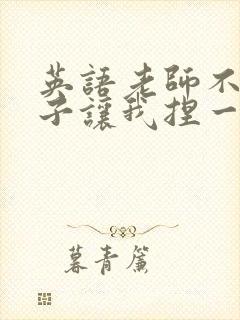 英語老師不
子讓我捏一
暮青簾